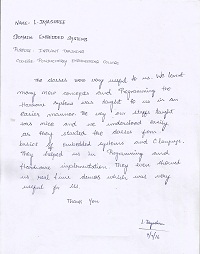 NAME: L. JAYASHREE
DOMAIN: EMBEDDED SYSTEMS
PURPOSE: INPLANT TRAINING
COLLEGE: PONDICHERRY ENGINEERING COLLEGE
The classes were very useful to us. We learnt
many new concepts and Programming the
Hardware systems was taught to us in an
easier manner. The way our staffs taught
was nice and we understood easily
as they started the classes from
basics of embedded systems and C language.
They helped us in Programming and
Hardware implementation. They even showed
us real time demos which was very
useful for us.
THANK YOU